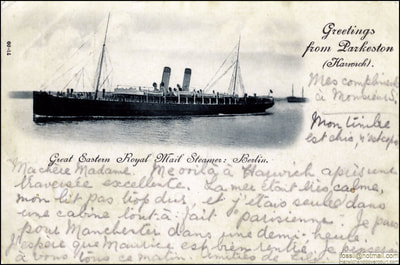 Greetings
from Parkeston
(Harwich).
Mes compliments
à Monsieur.
Mon timbre
est chic,
Great Eastern Royal Mail Steamer: Berlin.
Ma chère Madame. Me voilà à Harwich après une
traversée excellente. La mer était très calme,
mon lit pas trop dur, et j'étais seule dans
une cabine tout à fait "parisienne". Je pars
pour Manchester dans une demi-heure.
J'espère que Maurice est bien rentré, je pense
à vous tous ce matin. Amitiés de
fossil@hotmail.com